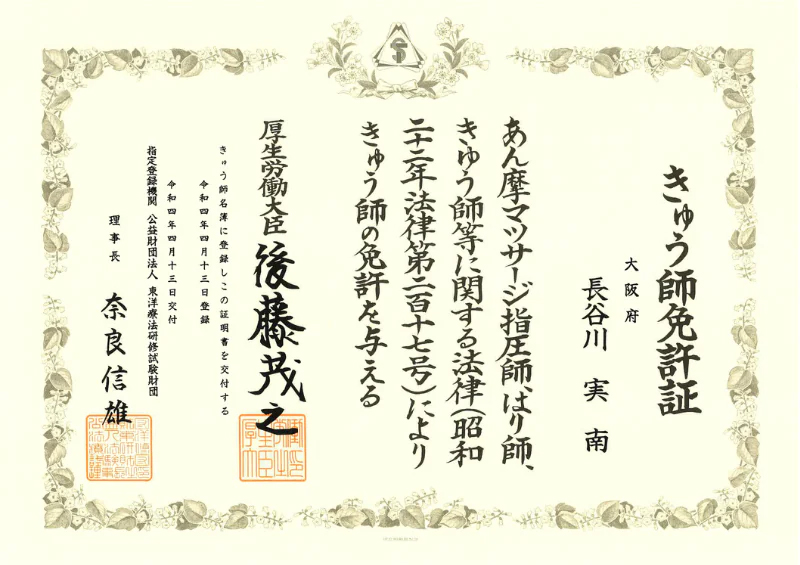 きゅう師免許証
大阪府
長谷川 実南
あん摩マツサージ指圧師、はり師、
きゆう師等に関する法律(昭和
二十二年法律第二百十七号)により
きゅう師の免許を与える
厚生労働大臣 後藤茂之
きゅう師名簿に登録しこの証明書を交付する
令和四年四月十三日登録
令和四年四月十三日交付
指定登録機関 公益財団法人 東洋療法研修試験財団
理事長 奈良信雄